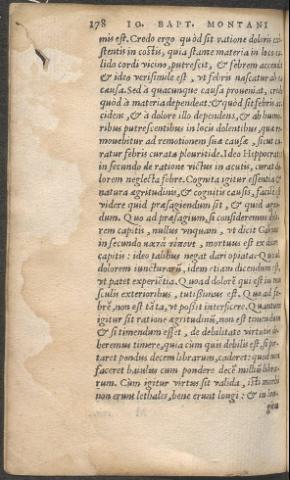 178 IO. BAPT. MONTANI
mus est. Credo ergo quòd sit ratione doloris exi-
stentis in costis, quia stante materia in loco ca-
lido cordi vicino, putrescit, & febrem accendit
& ideo verisimile est, vt febris nascatur ab ea
causa. Sed à quacunque causa proueniat, credo
quòd à materia dependeat: & quòd sit febris ac-
cidens, & à dolore illo dependens, & ab humo-
ribus putrescentibus in locis dolentibus, quæ re-
mouebitur ad remotionem suæ causæ, sicut cu-
ratur febris curata pleuritide. Ideo Hippocrates
in secundo de ratione victus in acutis, curat do-
lorem neglecta febre. Cognita igitur essentia &
natura ægritudinis, & cognitis causis, facile est
videre quid præsagiendum sit, & quid agen-
dum. Quo ad præsagium, si consideremus dolo-
rem capitis, nullus vnquam, vt dicit Galenus
in secundo κατὰ τόπους, mortuus est ex dolore
capitis: ideo talibus negat dari opiata. Quo ad
dolorem iuncturarũ, idem etiam dicendum est,
vt patet experiẽtia. Quo ad dolorẽ qui est in mu-
sculis exterioribus, tutissimus est. Quo ad fe-
brẽ, non est tãta, vt possit interficere. Quantum
igitur sit ratione ægritudinũ, non est timendum
& si timendum esset, de debilitate virtutis de-
beremus timere, quia cùm quis debilis est, si por-
taret pondus decem librarum, caderet: quod non
faceret baiulus cum pondere decẽ milliũ libra-
rum. Cùm igitur virtus sit valida, isti morbi
non erunt lethales, bene erunt longi: & in lon-
gitu